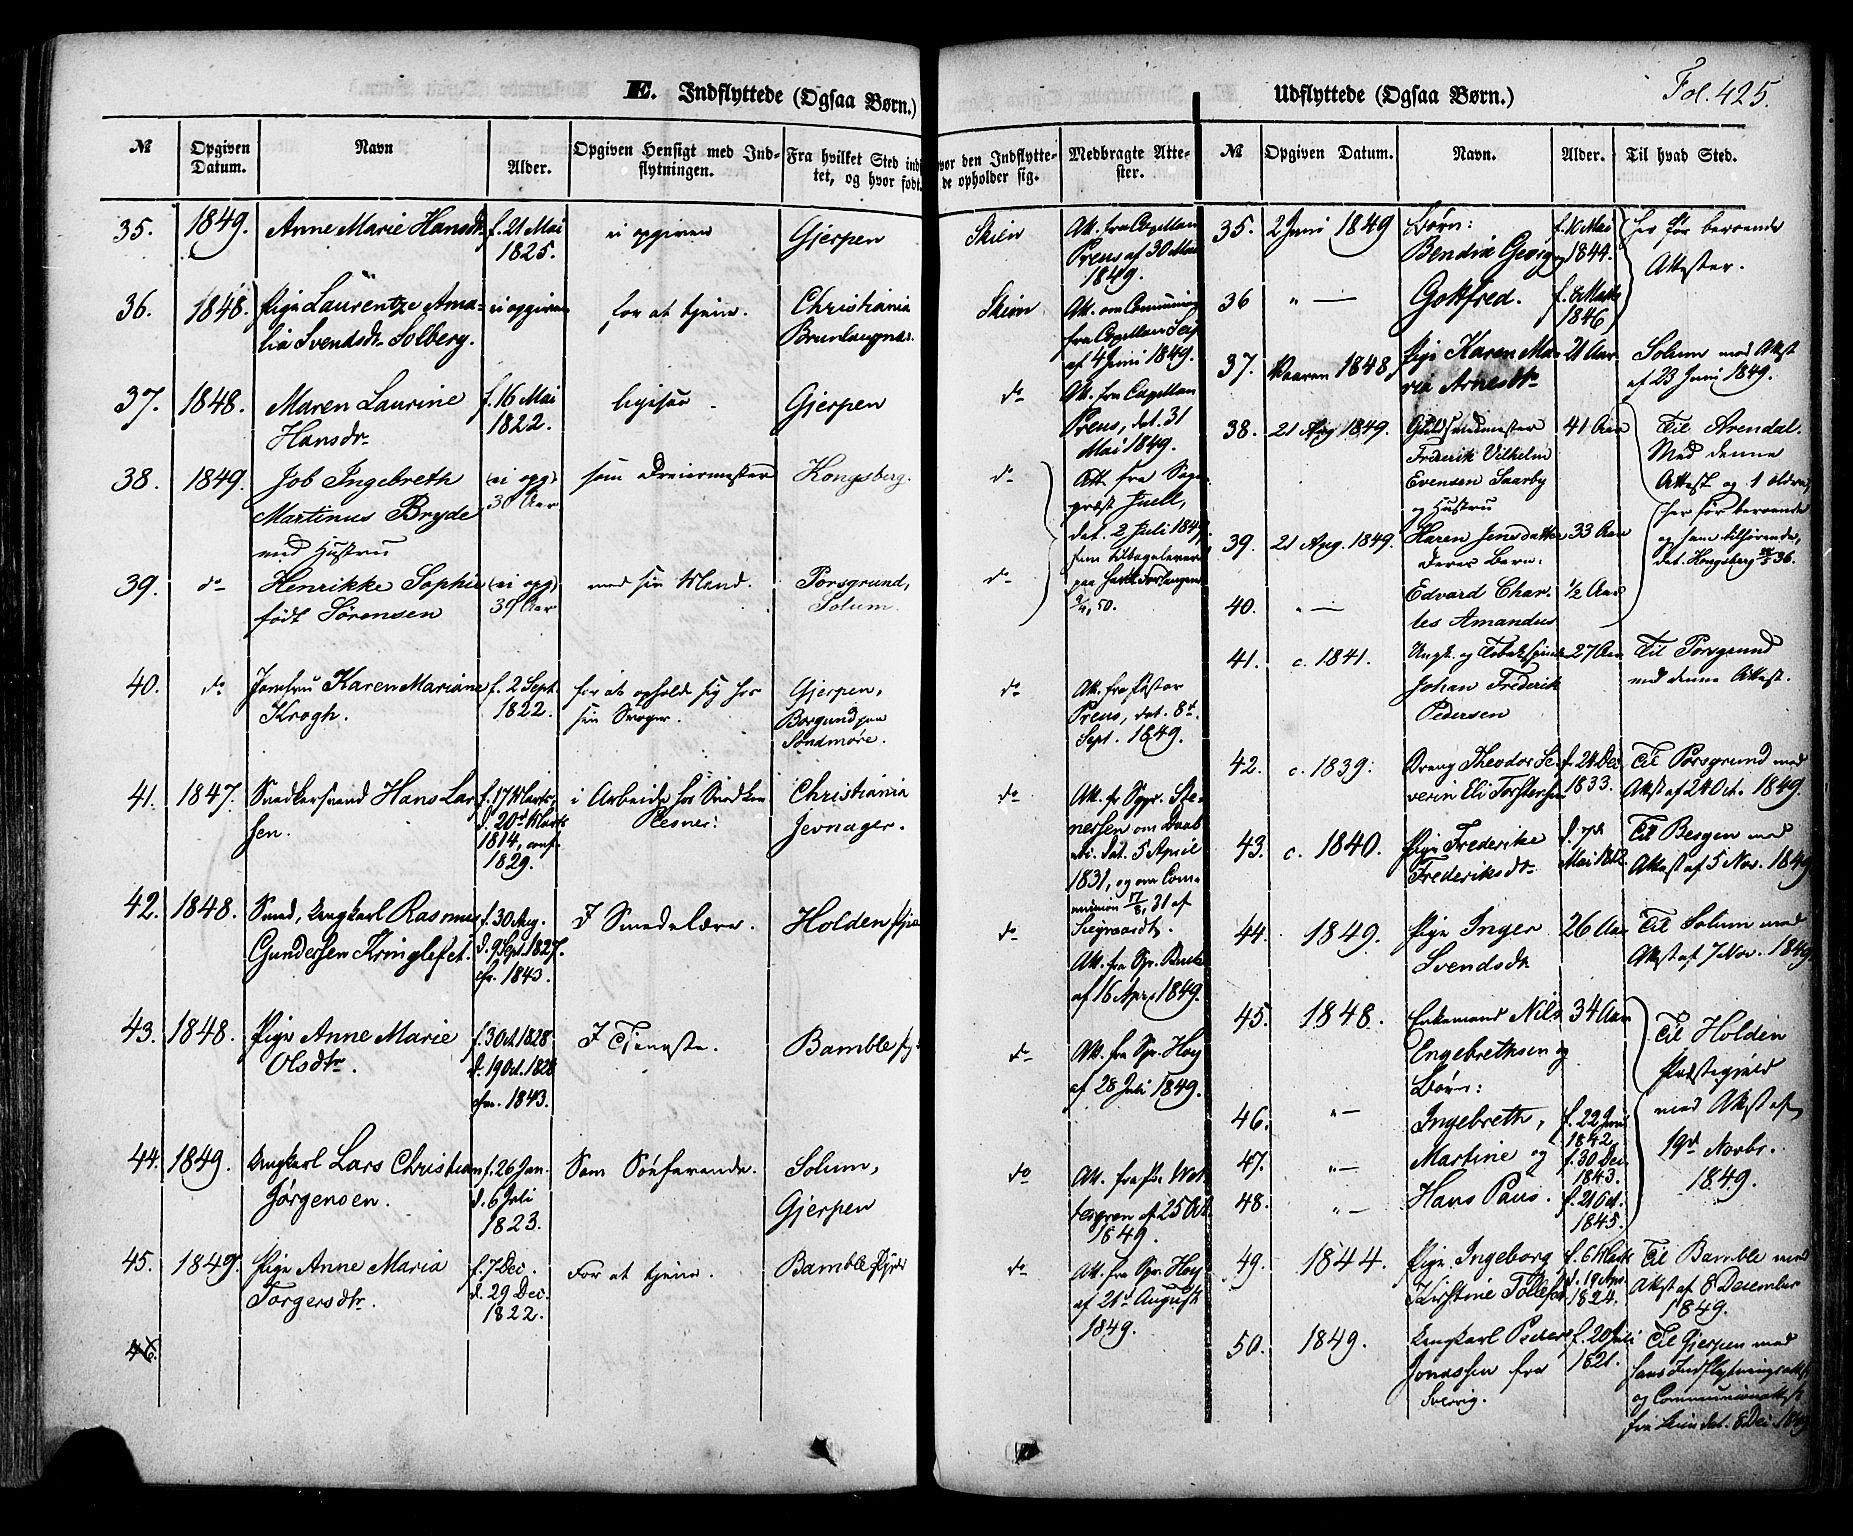 E. Indflyttede (Ogsaa Børn.)
Udflyttede (Ogsaa Børn.)
Fol. 425.
№ Opgiven Datum. Navn Alder. Opgiven Hensigt med Indflytningen. Fra hvilket Sted indtet, og hvor født. vor den Indflyttede opholder sig. Medbragte Attester.
35. 1849. Anne Marie Hansdr f. 21 Mai 1825. ei opgiven Gjerpen Skien Att. fra Capellan Preus af 30 Mai 1849.
36. 1848. Pige Laurentze Amalia Svendsdr. Solberg. ei opgiven for at tjene. Christiania Brunlaugnæs. Skien Att. om Communion fra Capellan af 4 Juni 1849.
37. 1848. Maren Laurine Hansdr. f. 16 Mai 1822. ligesaa Gjerpen do Att. fra Capellan Preus, dat. 31 Mai 1849.
38. 1849. Job Ingebreth Martinus Bryde med Hustru ei opg. 30 Aar som Dreiermester Kongsberg. do Att. fra Sogneprest Juell, dat. 2 Juli 1849,
39. do Henrikke Sophie født Sørensen ei opg. med sin Mand. Porsgrund, Solum. do
40. do Jomfru Karen Mariane Krogh. f. 2 Sept. 1822. for at opholde sig hos sin Svoger. Gjerpen, Borgund paa Søndmøre. do Att. fra Pastor Preus, dat. 8d Sept. 1849.
41. 1847. Snedkersvend Hans Larsen. f. 17 Marts, d. 20d Marts 1814, conf. 1829. i Arbeide hos Snedker Plesner. Christiania Jevnager. do Att. fr Sgpr. Stenersen om Daab dat. 5 April 1831, og om Communion 17/8 31 af
42. 1848. Smed, Ungkarl Rasmus Gundersen Kringlefet. f. 30 Aug. d. 9 Sept. 1827. cfr. 1843. I Smedelære. Holden do Att. fra Sp. af 16 Apr. 1849.
43. 1848. Pige Anne Marie Olsdtr. f. 3 Oct. 1828 d. 19 Oct. 1828 cfr. 1843. I Tjeneste. Bamble do Att. fra Spr. Hoy af 28 Juli 1849.
44. 1849. Ungkarl Lars Christian Jørgensen. f. 26 Jan. d. 6 Juli 1823. Som Søefarende. Solum, Gjerpen do Att. fra af 25 Oct. 1849.
45. 1849. Pige Anne Maria Torgersdtr. f. 7 Dec. d. 29 Dec. 1822. For at tjene. Bamble do Att. fra Spr. Hoy af 21d August 1849.
46.
№ Opgiven Datum. Navn. Alder. Til hvad Sted.
35. 2 Juni 1849 Børn: Bendix Georg og f. 10 Mai 1844. her før beroende Attester.
36 " — Gottfred. f. 8 Marts 1846
37. Vaaren 1848, Pige Karen Maria Arnesdtr 21 Aar. Solum med Attest af 23 Juni 1849.
38. 21 Aug 1849. Guldsmedmester Frederik Vilhelm Evensen Saarby og Hustru 41 Aar Til Arendal. Med denne Attest og 1 ældre, her før beroende
39. 21 Aug. 1849. Karen Jensdatter Deres Barn: 33 Aar og ham tilhørende, dat. Kongsberg
40. " — Edvard Charles Amandus ½ Aar
41. c. 1841. Ungk. og Tobakspinder Johan Frederik Pedersen 27 Aar Til Porsgrund med denne Attest.
42. c. 1839. Dreng Theodor Severin Eli Torstensen f. 24 Dec 1833. Til Porsgrund med Attest af 24 Oct. 1849.
43. c. 1840. Pige Frederike Frederiksdtr f. 7d Mai 1812. Til Bergen med Attest af 5 Nov. 1849
44. 1849. Pige Inger Svendsdtr 26 Aar Til Solum med Attest af 7 Nov. 1849.
45. 1848. Enkemand Nils Engebrethsen og Børn: 34 Aar Til Holden Præstegjeld med Attest af 19d Novbr. 1849.
46. " — Ingebreth, f. 22 Juni 1842,
47. " — Martine og f. 30 Dec. 1843.
48. " — Hans Paus. f. 21 Oct. 1845.
49. 1844. Pige Ingeborg Kirstine Tollefsd f. 6 Marts d. 19 Apr. 1824. Til Bamble med Attest af 8 Desember 1849.
50. 1849. Ungkarl Peder Jonassen fra f. 20 Juli 1821. Til Gjerpen med hans Indflytningsattest og Communionattest fra Skien dat. 8 Dec 1849